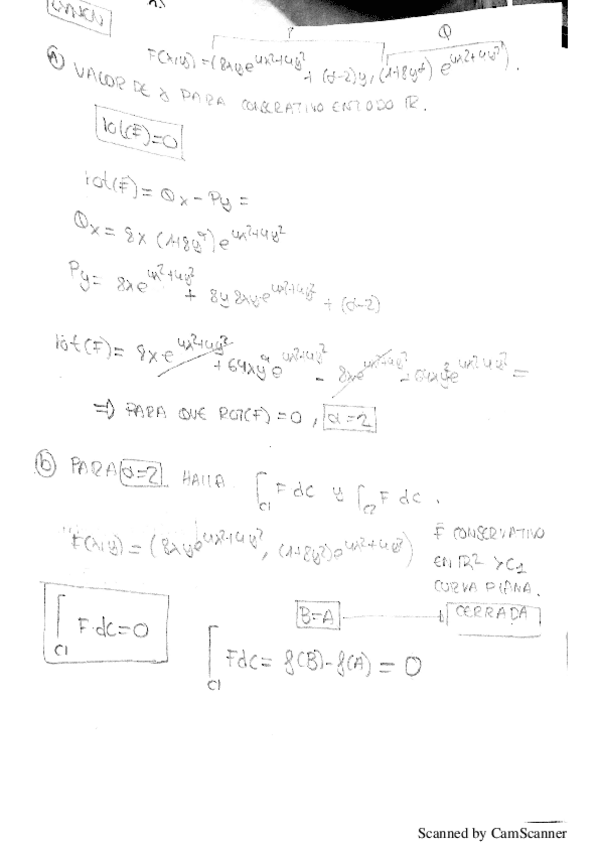 P
Q
F(x,y)=(8xye^{4x²+4y²} + (α-2)y, (1+8y²) e^{4x²+4y²}).
a) VALOR DE α PARA CONSERVATIVO EN TODO R.
rot(F)=0
rot(F)= Qx - Py =
Qx = 8x (1+8y²) e^{4x²+4y²}
Py= 8xe^{4x²+4y²} + 8y 8xye^{4x²+4y²} + (α-2)
rot(F)= 8x e^{4x²+4y²} + 64xy²e^{4x²+4y²} - 8xe^{4x²+4y²} - 64xy²e^{4x²+4y²} =
⇒ PARA QUE ROT(F)=0, α=2
b) PARA α=2 HALLA ∫_{C1} F dC y ∫_{C2} F dC.
F(x,y)=(8xye^{4x²+4y²}, (1+8y²)e^{4x²+4y²})
F CONSERVATIVO
EN R² y C1
CURVA PLANA.
CERRADA
B=A
∫_{C1} F·dC=0
∫_{C1} FdC= f(B)-f(A) = 0
Scanned by CamScanner